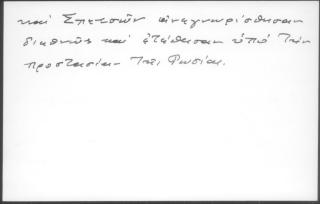 καί Σπετσῶν ἀνεγνωρίσθησαν
διεθνῶς καί ἐτέθησαν ὑπό τήν
προστασίαν τῆς Ρωσίας.